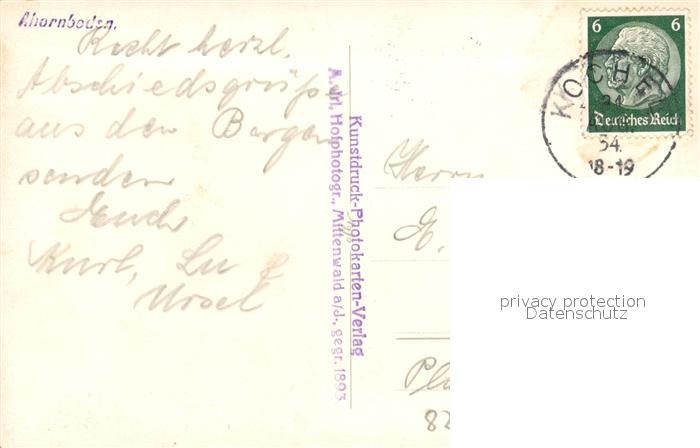 Ahornboden.
Recht herzl.
Abschiedsgrüße
aus den Bergen
senden
Euch
Kurt, Lu &
Ursel
Kunstdruck-Photokarten-Verlag
Hofphotogr., Mittenwald a/J., gegr. 1893
6 6
Deutsches Reich
KOCHEL
34
18-19
Herrn
privacy protection
Datenschutz